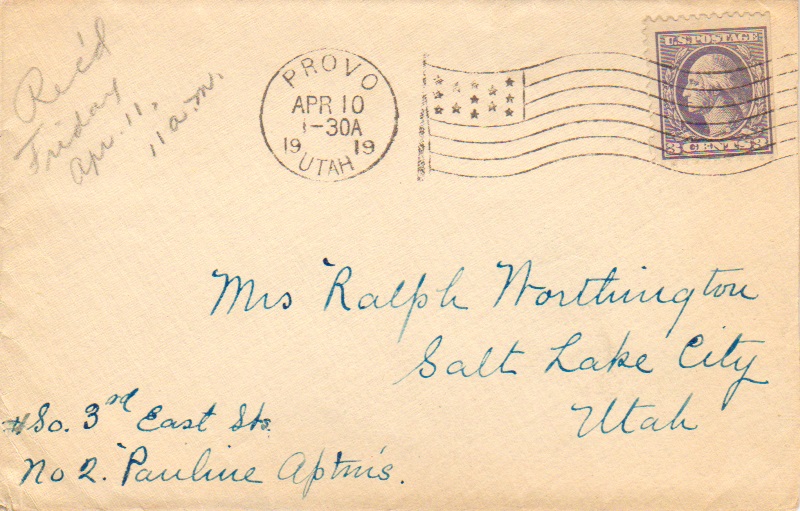 Rec'd
Friday
Apr. 11,
11 a.m.
PROVO
APR 10
1-30A
19 19
UTAH
U.S. POSTAGE
3 CENTS 3
Mrs Ralph Worthington
Salt Lake City
Utah
#So. 3rd East Sts.
No 2. Pauline Aptm's.